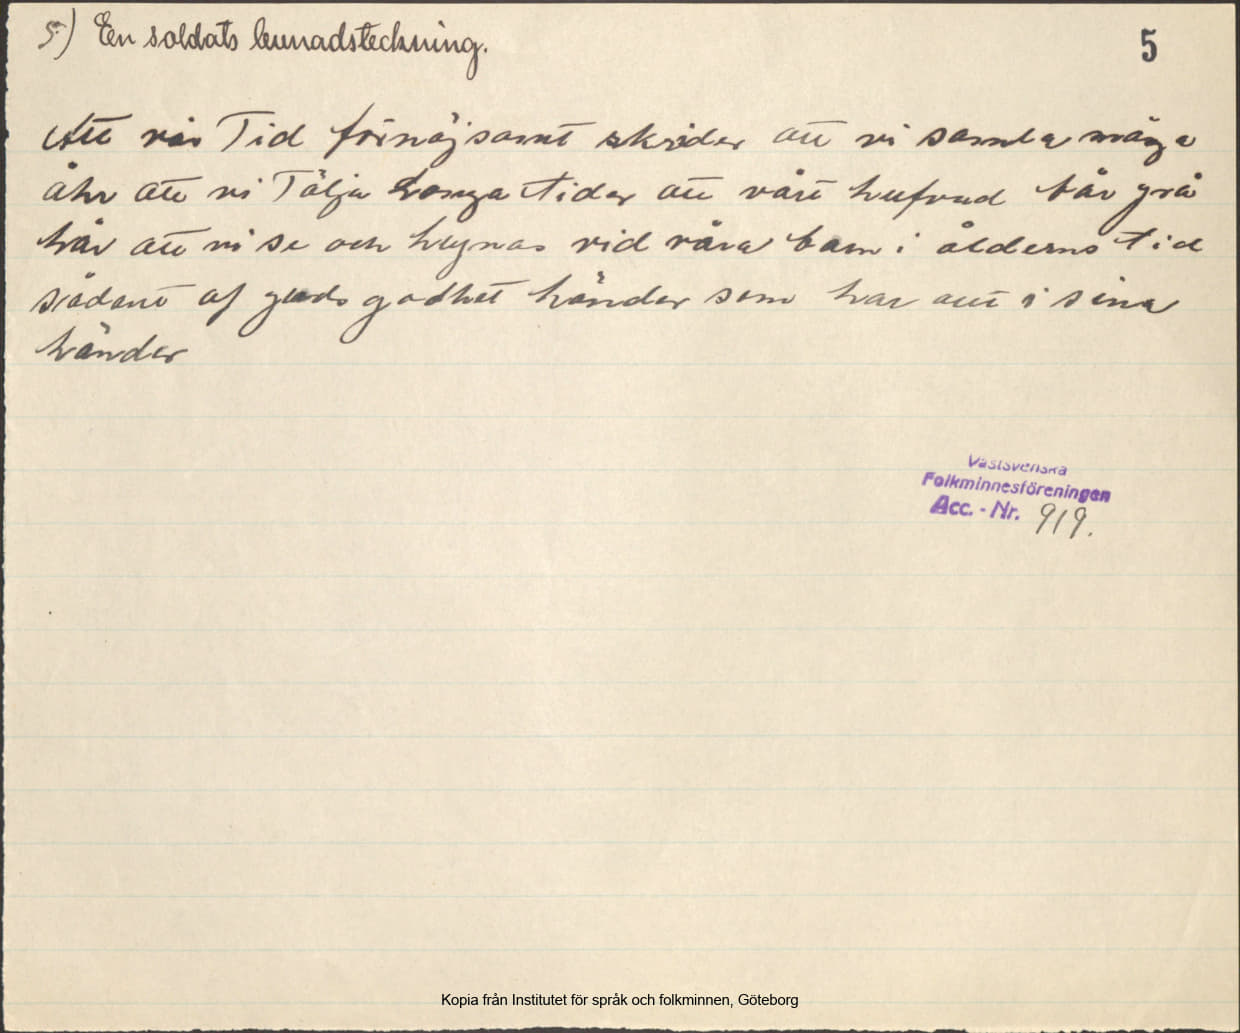 5.) En soldats levnadsteckning.
5
Att vår Tid förnöjsamt skrider att vi samla många
åhr att vi Tälja Longa tider att vårt hufvud bär grå
hår att vi se och hugnas vid våra barn i ålderns tid
sådant af guds godhet händer som har allt i sina
händer
Västsvenska
Folkminnesföreningen
Acc. - Nr. 919.
Kopia från Institutet för språk och folkminnen, Göteborg